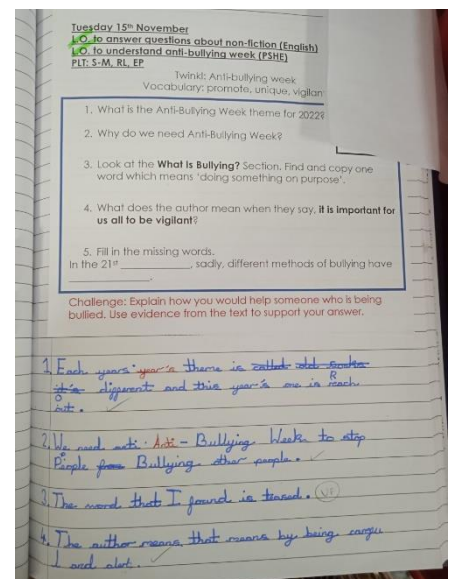 Tuesday 15th November
L.O. to answer questions about non-fiction (English)
L.O. to understand anti-bullying week (PSHE)
PLT: S-M, RL, EP
Twinkl: Anti-bullying week
Vocabulary: promote, unique, vigilan
1. What is the Anti-Bullying Week theme for 2022?
2. Why do we need Anti-Bullying Week?
3. Look at the What is Bullying? Section. Find and copy one
word which means 'doing something on purpose'.
4. What does the author mean when they say, it is important for
us all to be vigilant?
5. Fill in the missing words.
In the 21st ____________, sadly, different methods of bullying have
______________.
Challenge: Explain how you would help someone who is being
bullied. Use evidence from the text to support your answer.
1. Each years year's theme is called
it's different and this year's one is Reach
out.
2. We need anti- Anti-Bullying Week to stop
People Bullying other people.
3. The word that I found is teased.
4. The author means that means by being
and alert.